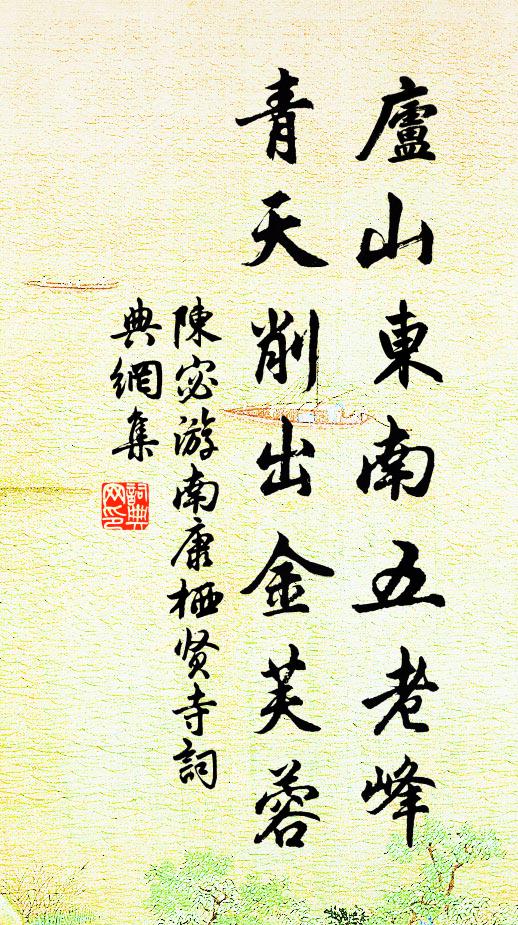 廬山東南五老峰
青天削出金芙蓉
陳宓游南康栖贤寺詞
典網集
詞典网印